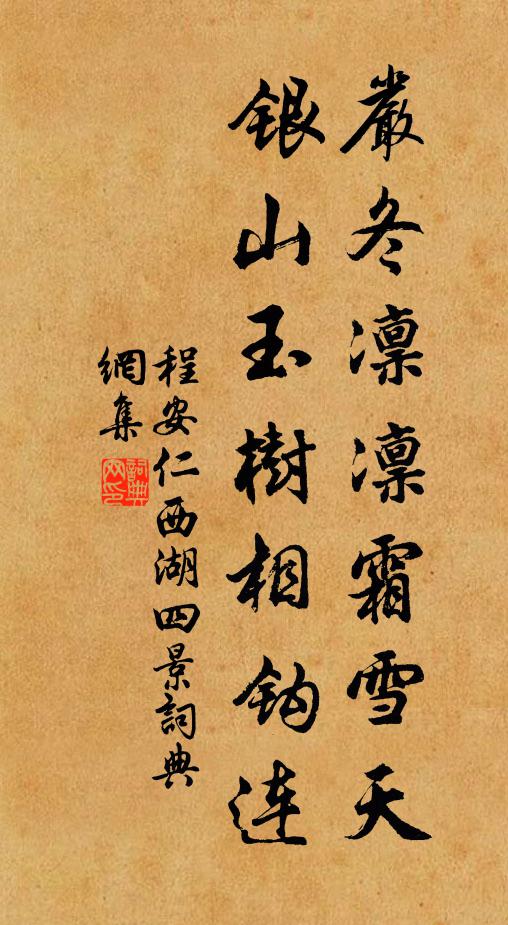 嚴冬凛凛霜雪天
銀山玉樹相鈎連
程安仁西湖四景詞典
網集
詞典网印